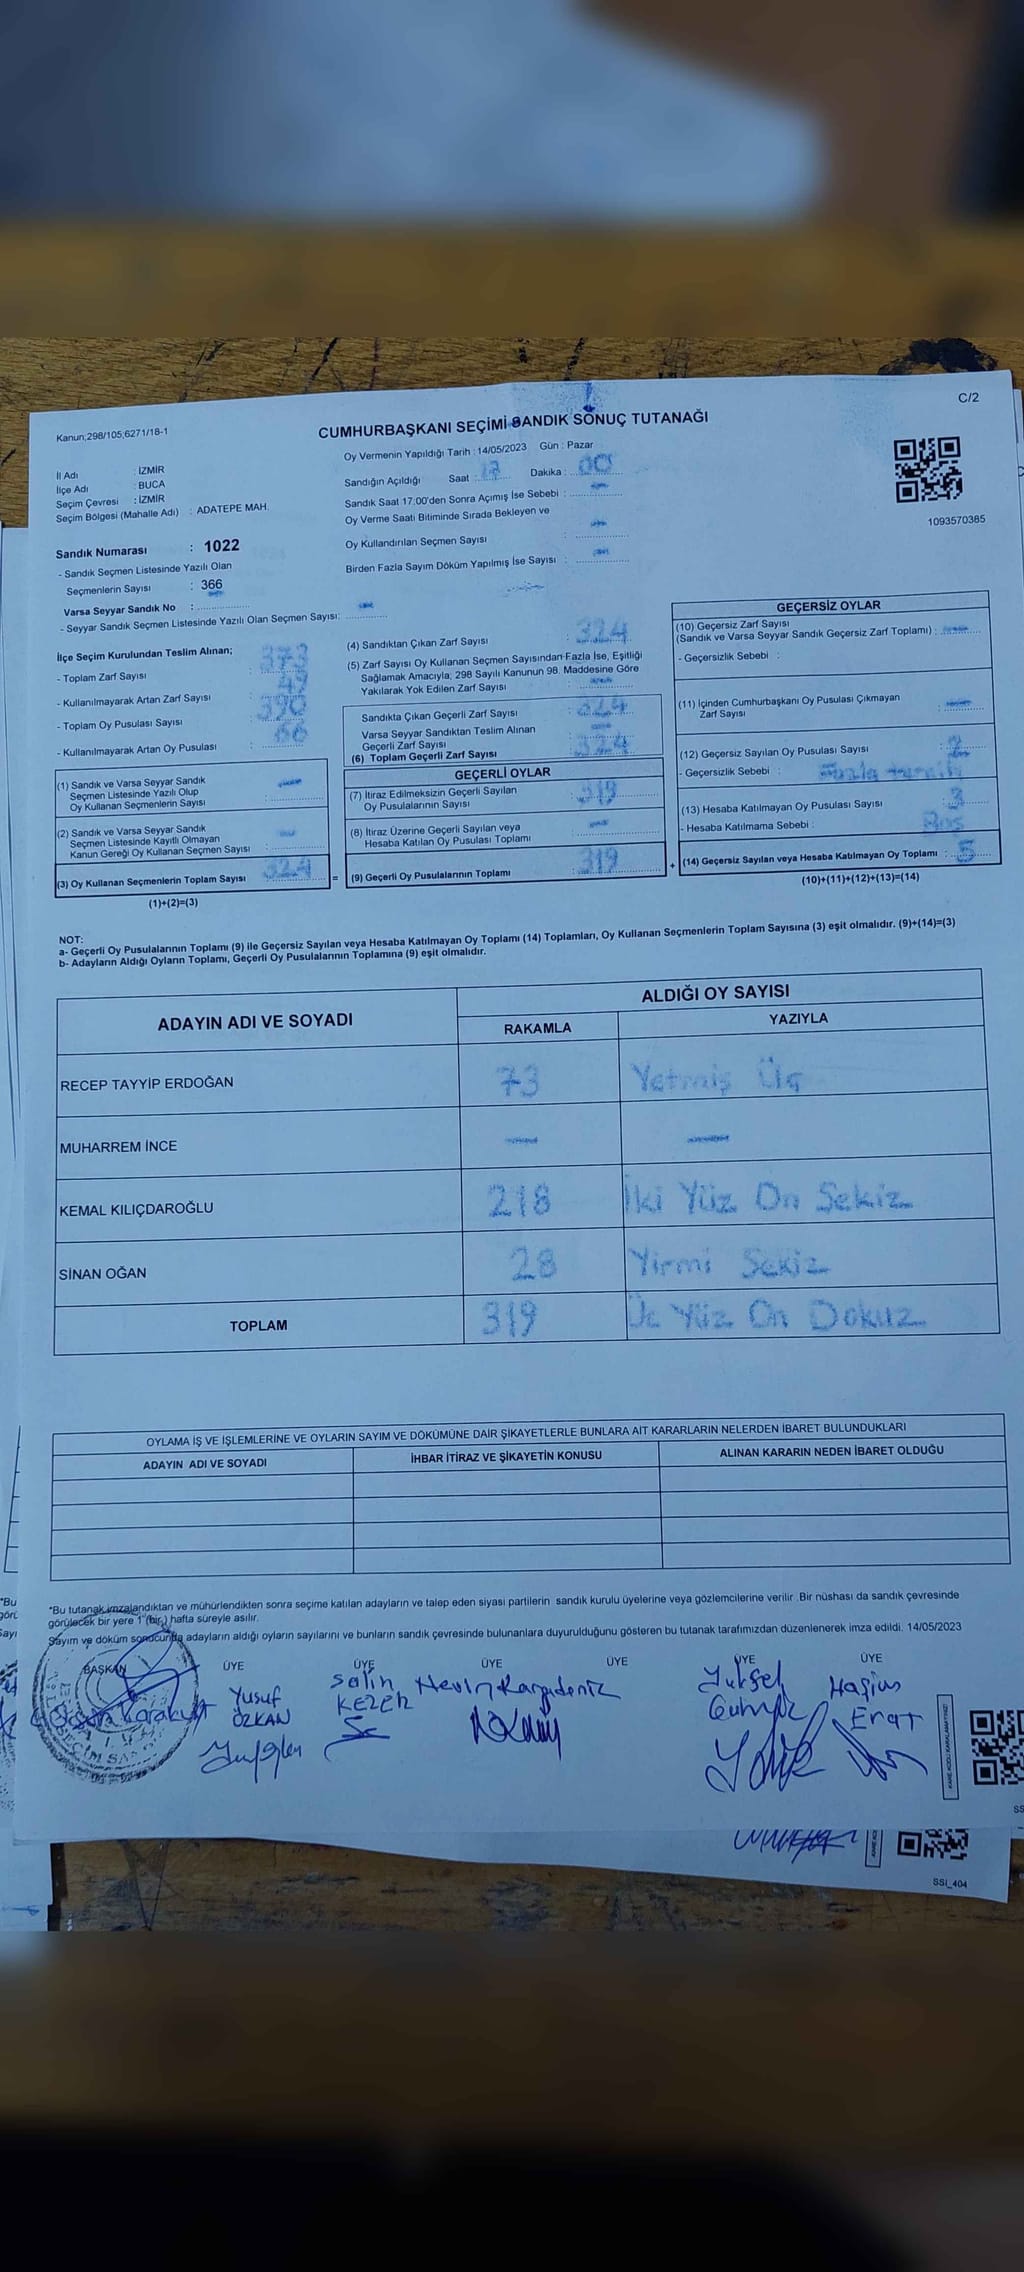 C/2
Kanun;298/105;6271/18-1
CUMHURBAŞKANI SEÇİMİ SANDIK SONUÇ TUTANAĞI
Oy Vermenin Yapıldığı Tarih : 14/05/2023 Gün : Pazar
İl Adı : İZMİR
İlçe Adı : BUCA
Seçim Çevresi : İZMİR
Seçim Bölgesi (Mahalle Adı) : ADATEPE MAH.
Sandığın Açıldığı Saat : 17 Dakika : 00
Sandık Saat 17:00'den Sonra Açımış İse Sebebi : —
Oy Verme Saati Bitiminde Sırada Bekleyen ve
Oy Kullandırılan Seçmen Sayısı : —
Birden Fazla Sayım Döküm Yapılmış İse Sayısı : —
1093570385
Sandık Numarası : 1022
- Sandık Seçmen Listesinde Yazılı Olan
Seçmenlerin Sayısı : 366
Varsa Seyyar Sandık No :
- Seyyar Sandık Seçmen Listesinde Yazılı Olan Seçmen Sayısı: —
İlçe Seçim Kurulundan Teslim Alınan;
- Toplam Zarf Sayısı : 373
- Kullanılmayarak Artan Zarf Sayısı : 49
- Toplam Oy Pusulası Sayısı : 390
- Kullanılmayarak Artan Oy Pusulası : 66
(1) Sandık ve Varsa Seyyar Sandık
Seçmen Listesinde Yazılı Olup
Oy Kullanan Seçmenlerin Sayısı : —
(2) Sandık ve Varsa Seyyar Sandık
Seçmen Listesinde Kayıtlı Olmayan
Kanun Gereği Oy Kullanan Seçmen Sayısı : —
(3) Oy Kullanan Seçmenlerin Toplam Sayısı : 324
(1)+(2)=(3)
(4) Sandıktan Çıkan Zarf Sayısı : 324
(5) Zarf Sayısı Oy Kullanan Seçmen Sayısından Fazla İse, Eşitliği
Sağlamak Amacıyla; 298 Sayılı Kanunun 98. Maddesine Göre
Yakılarak Yok Edilen Zarf Sayısı : —
Sandıkta Çıkan Geçerli Zarf Sayısı : 324
Varsa Seyyar Sandıktan Teslim Alınan
Geçerli Zarf Sayısı : —
(6) Toplam Geçerli Zarf Sayısı : 324
GEÇERLİ OYLAR
(7) İtiraz Edilmeksizin Geçerli Sayılan
Oy Pusulalarının Sayısı : 319
(8) İtiraz Üzerine Geçerli Sayılan veya
Hesaba Katılan Oy Pusulası Toplamı : —
= (9) Geçerli Oy Pusulalarının Toplamı : 319
GEÇERSİZ OYLAR
(10) Geçersiz Zarf Sayısı
(Sandık ve Varsa Seyyar Sandık Geçersiz Zarf Toplamı) : —
- Geçersizlik Sebebi :
(11) İçinden Cumhurbaşkanı Oy Pusulası Çıkmayan
Zarf Sayısı : —
(12) Geçersiz Sayılan Oy Pusulası Sayısı : 2
- Geçersizlik Sebebi : Fazla tercih
(13) Hesaba Katılmayan Oy Pusulası Sayısı : 3
- Hesaba Katılmama Sebebi : Boş
+ (14) Geçersiz Sayılan veya Hesaba Katılmayan Oy Toplamı : 5
(10)+(11)+(12)+(13)=(14)
NOT:
a- Geçerli Oy Pusulalarının Toplamı (9) ile Geçersiz Sayılan veya Hesaba Katılmayan Oy Toplamı (14) Toplamları, Oy Kullanan Seçmenlerin Toplam Sayısına (3) eşit olmalıdır. (9)+(14)=(3)
b- Adayların Aldığı Oyların Toplamı, Geçerli Oy Pusulalarının Toplamına (9) eşit olmalıdır.
ADAYIN ADI VE SOYADI
ALDIĞI OY SAYISI
RAKAMLA YAZIYLA
RECEP TAYYİP ERDOĞAN 73 Yetmiş Üç
MUHARREM İNCE — —
KEMAL KILIÇDAROĞLU 218 İki Yüz On Sekiz
SİNAN OĞAN 28 Yirmi Sekiz
TOPLAM 319 Üç Yüz On Dokuz
OYLAMA İŞ VE İŞLEMLERİNE VE OYLARIN SAYIM VE DÖKÜMÜNE DAİR ŞİKAYETLERLE BUNLARA AİT KARARLARIN NELERDEN İBARET BULUNDUKLARI
ADAYIN ADI VE SOYADI İHBAR İTİRAZ VE ŞİKAYETİN KONUSU ALINAN KARARIN NEDEN İBARET OLDUĞU
*Bu tutanak imzalandıktan ve mühürlendikten sonra seçime katılan adayların ve talep eden siyasi partilerin sandık kurulu üyelerine veya gözlemcilerine verilir. Bir nüshası da sandık çevresinde
görülecek bir yere 1 (bir) hafta süreyle asılır.
Sayım ve döküm sonucunda adayların aldığı oyların sayılarını ve bunların sandık çevresinde bulunanlara duyurulduğunu gösteren bu tutanak tarafımızdan düzenlenerek imza edildi. 14/05/2023
BAŞKAN ÜYE ÜYE ÜYE ÜYE ÜYE ÜYE
Yusuf ÖZKAN
Salih KEZER
Nevin Karadeniz
Haşim Erat
SSİ_404